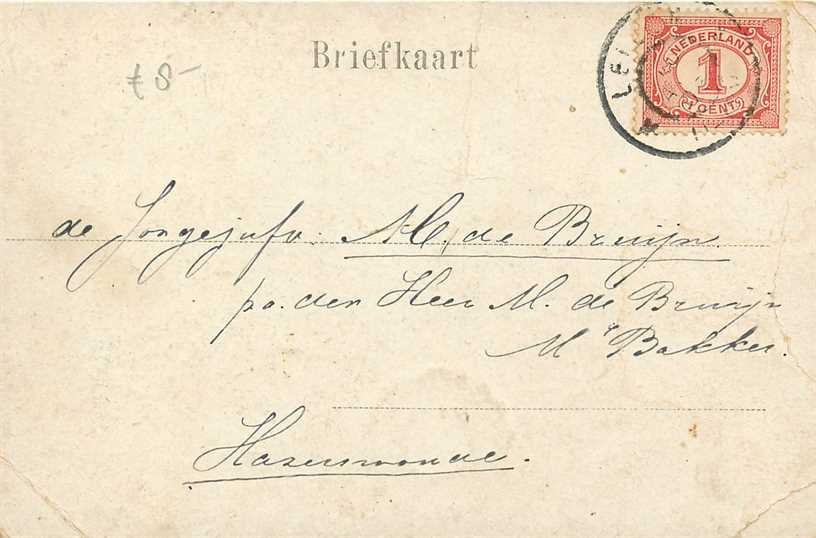 Briefkaart
f 8-
NEDERLAND
1
1 CENT
LEI
de Jongejufv: M. de Bruijn.
p.a. den Heer M. de Bruijn
Mr Bakker.
Hazerswoude.